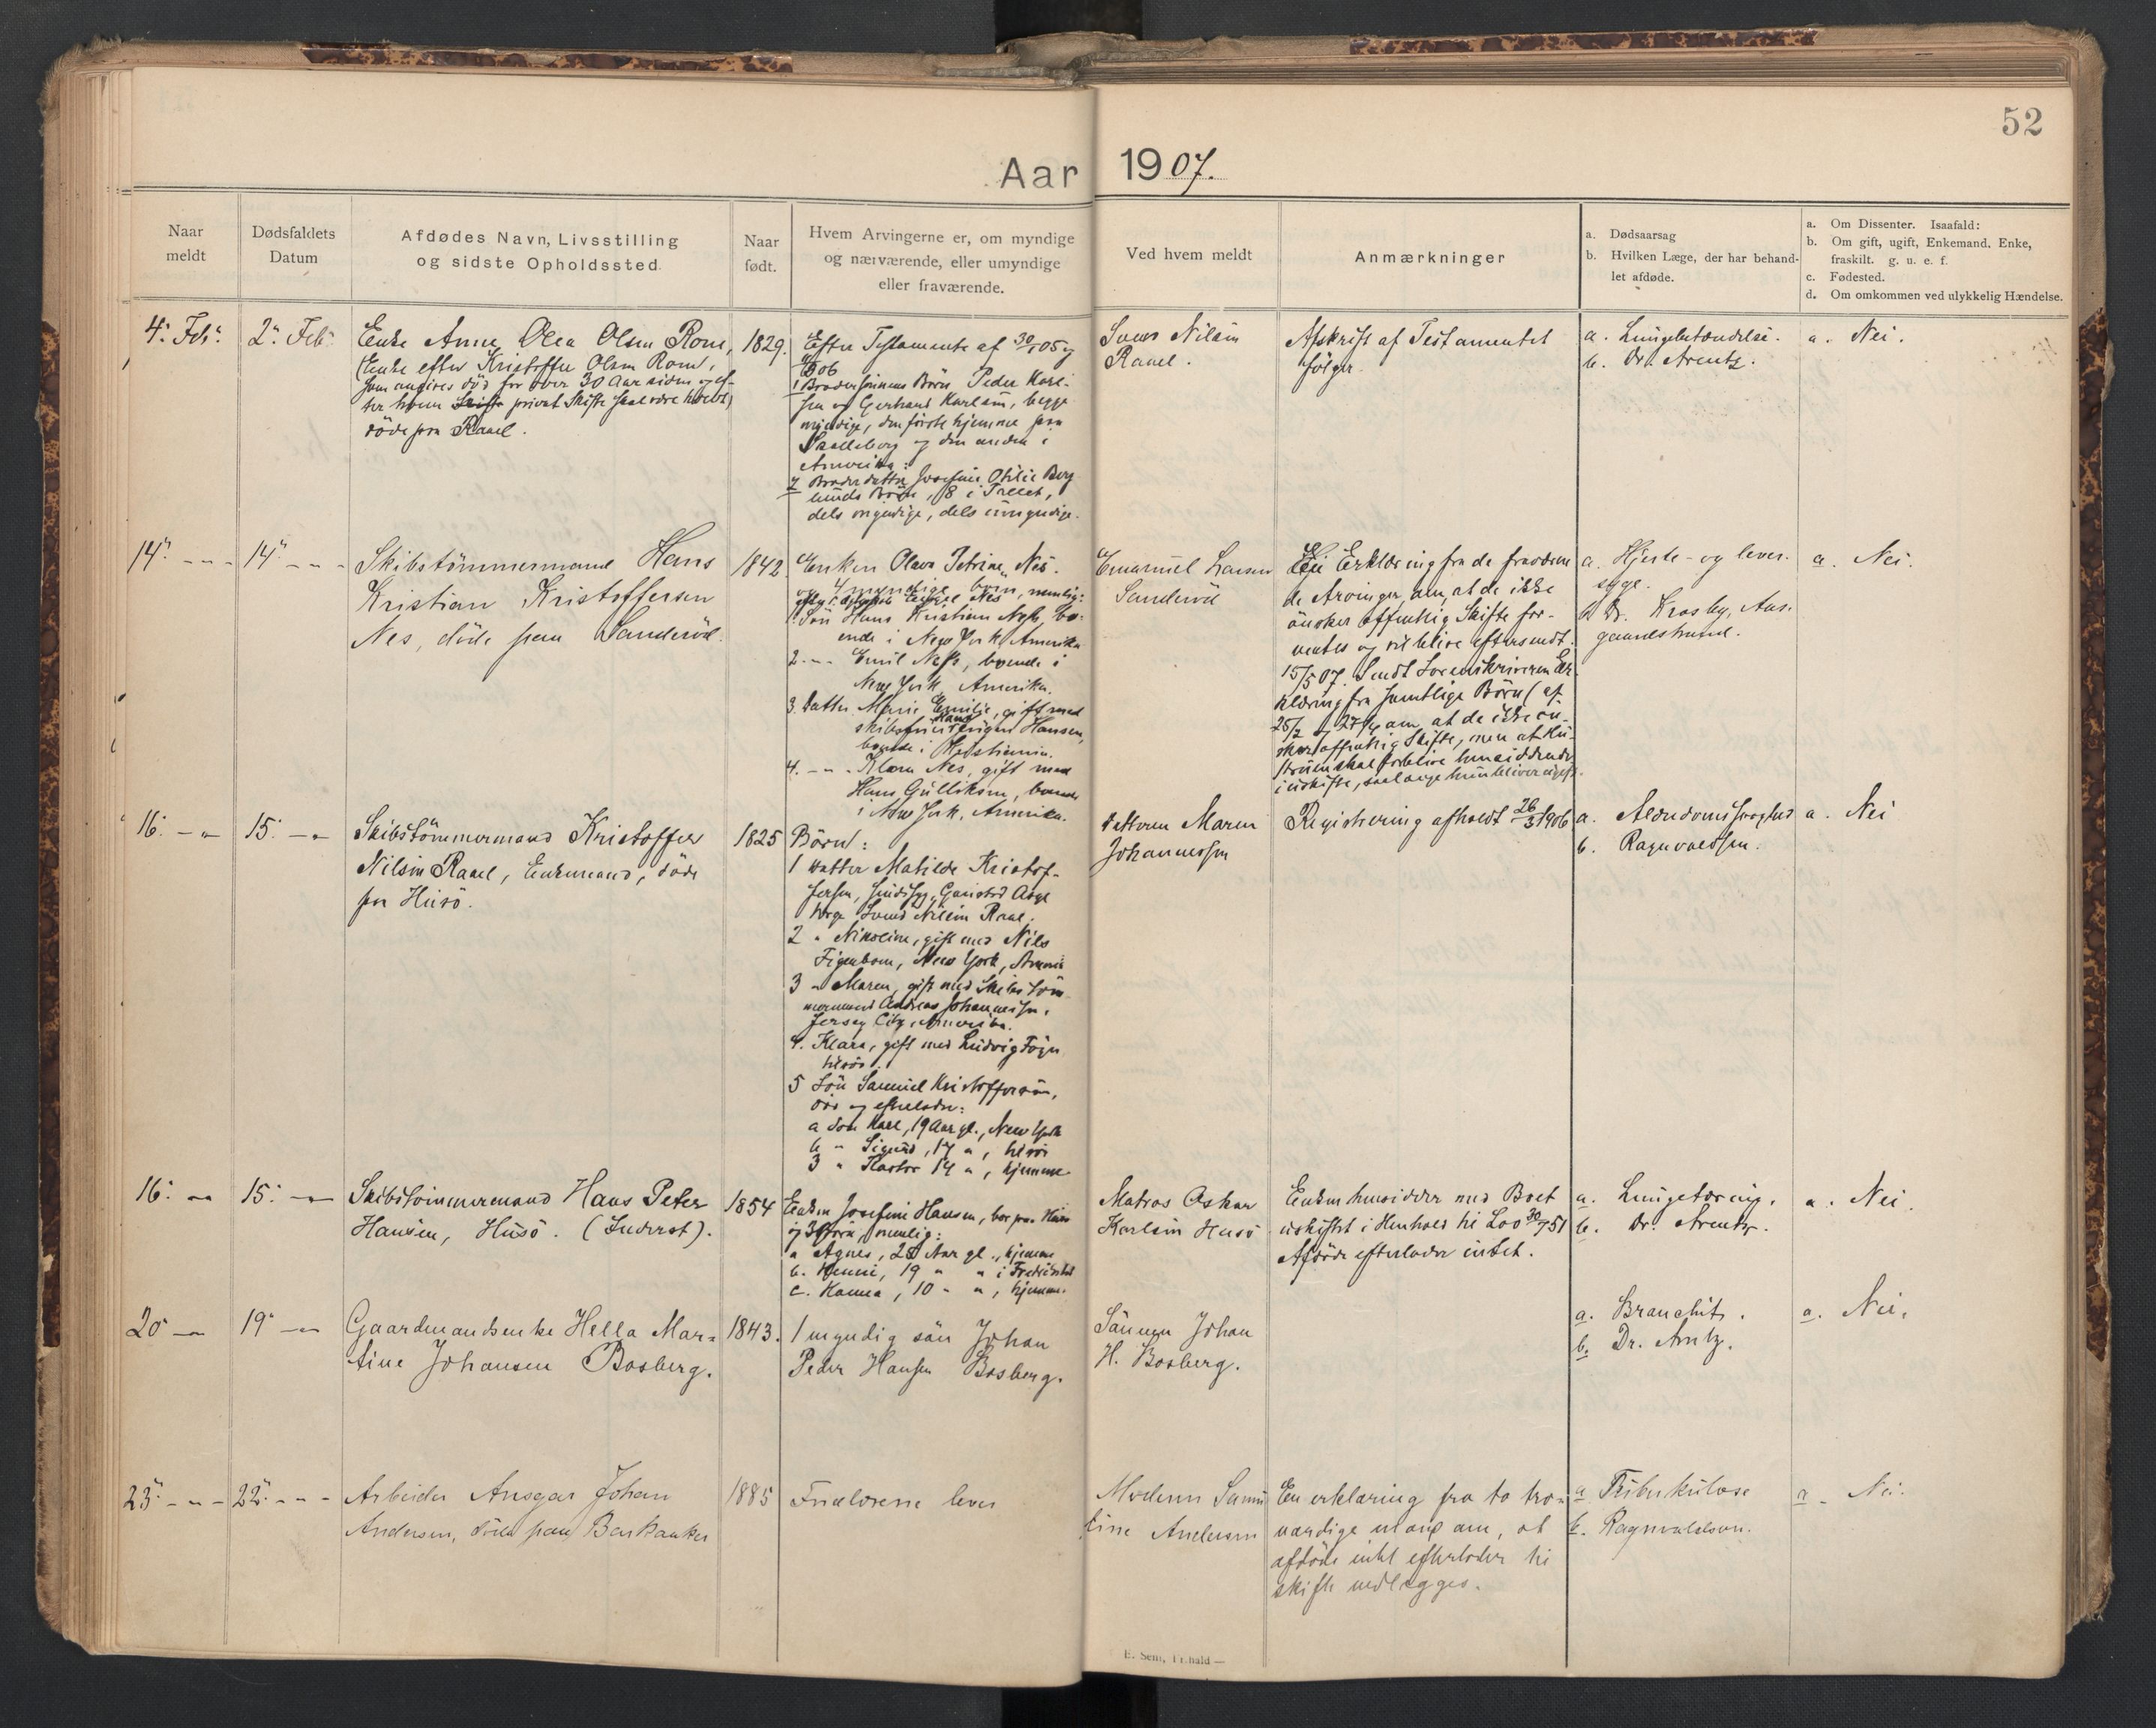 52
Aar 1907.
Naar meldt
Dødsfaldets Datum
Afdødes Navn, Livsstilling
og sidste Opholdssted.
Naar født.
Hvem Arvingerne er, om myndige
og nærværende, eller umyndige
eller fraværende.
Ved hvem meldt
Anmærkninger
a. Dødsaarsag
b. Hvilken Læge, der har behand-
let afdøde.
a. Om Dissenter. Isaafald:
b. Om gift, ugift, Enkemand. Enke,
fraskilt. g. u. e. f.
c. Fødested.
d. Om omkommen ved ulykkelig Hændelse.
4. Feb.
2. Feb.
Enke Anne Olea Olsen Rom,
(Enke efter Kristoffer Olsen Rom,
som angives död for over 30 Aar siden og ef-
ter hvem Skifte privat Skifte skal være holdt)
döde paa Rauel.
1829.
Efter Testamente af 30/ 05 og
06
1 Brodersönnens Börn Peder Karl-
sen og Gerhard Karlsen, begge
myndige, den förste hjemme paa
og den anden i
Amerika.
2 Broderdatter Josefine Otilie Berg
lunds Börn, 8 i Tallet,
dels myndige, dels umyndige.
Svend Nilsen
Rauel.
Afskrift af Testamentet
fölger
a. Lungebetændelse.
b. Dr. Arentz.
a. Nei.
14. - - -
14. - - -
Skibstömmermand Hans
Kristian Kristoffersen
Nes, döde paa Sanderöd.
1842.
Enken Olava Petrine Nes.
og 4 myndige börn, nemlig:
1. Sön Hans Kristian Nes, bo-
ende i New York Amerika
2. - - Emil Nes, boende i
New York Amerika.
3. Datter Marie Emilie, gift med
Hansen,
boende i Kristiania.
4. - - Klara Nes, gift med
Hans Gulliksen, boende
i New York, Amerika.
Emanuel Larsen
Sanderöd
Erklæring fra de fraværen
de Arvinger, om, at de ikke
önsker offentlig Skifte for-
ventes og vil blive eftersendt.
15/5 07. Sendt Sorenskriveren Er-
klæring fra samtlige Börn af
25/2 og 27/4 om, at de ikke ön-
sker offentlig Skifte, men at
skal forblive hensiddende
i uskifte, saalænge hun bliver ugift.
a. Hjerte- og lever-
syge.
b Dr. Krosby, Aas-
gaardstrand.
a. Nei.
16. - -
15. - -
Skibstömmermand Kristoffer
Nilsen Rauel, Enkemand, döde
paa Husö.
1825
Börn:
1 Datter Matilde Kristof-
fersen, Sindssyg, Gaustad Asyl
Værge Svend Nilsen Rauel.
2 " Nikoline, gift med Nils
Figenbom, New York, Amerika
3 " Maren, gift med Skibstöm-
mermand Andreas Johannessen,
Jersey City, Amerika.
4. Klara, gift med Ludvig
tilsös.
5 Sön Samuel Kristoffersen,
död og efterlader:
a Sön Karl, 19 Aar gl., New York
b " Sigurd, 17 " , tilsös
3 " 14 " , hjemme
Datteren Maren
Johannessen
Registrering afholdt 26/3 1906
a. Alderdomssvaghed
b. Ragnvaldsen.
a. Nei
16. - -
15. - -
Skibstömmermand Hans Peter
Hansen, Husö. (Inderst).
1854
Enken Josefine Hansen, bor paa Husö
og 3 Börn, nemlig:
a Agnes, 28 Aar gl., hjemme
b. Jenni, 19 " " i Fredrikstad
c. Hanna, 10 " " , hjemme.
Matros Oskar
Karlsen Husö
Enken hensidder med Boet
uskiftet i Henhold til Lov 30/7 51
Afdöde efterlader intet.
a. Lungetæring.
b. Dr. Arentz.
a. Nei.
20 - -
19 - -
Gaardmandsenke Hella Mar-
tine Johansen Bosberg.
1843.
1 myndig sön Johan
Peder Hansen Bosberg.
Sönnen Johan
H. Bosberg.
a. Bronchit.
b. Dr. Arntz.
a. Nei.
23. - - -
22. - - -
Arbeider Ansgar Johan
Andersen, döde paa Barkaaker
1885
Forældrene lever
Moderen Samu
line Andersen
En erklæring fra to tro-
værdige mænd om, at
afdöde intet efterlader til
skifte vedlægges.
a Tuberkulose
b. Ragnvaldsen.
a. Nei.
E. Sem, Fr.hald —